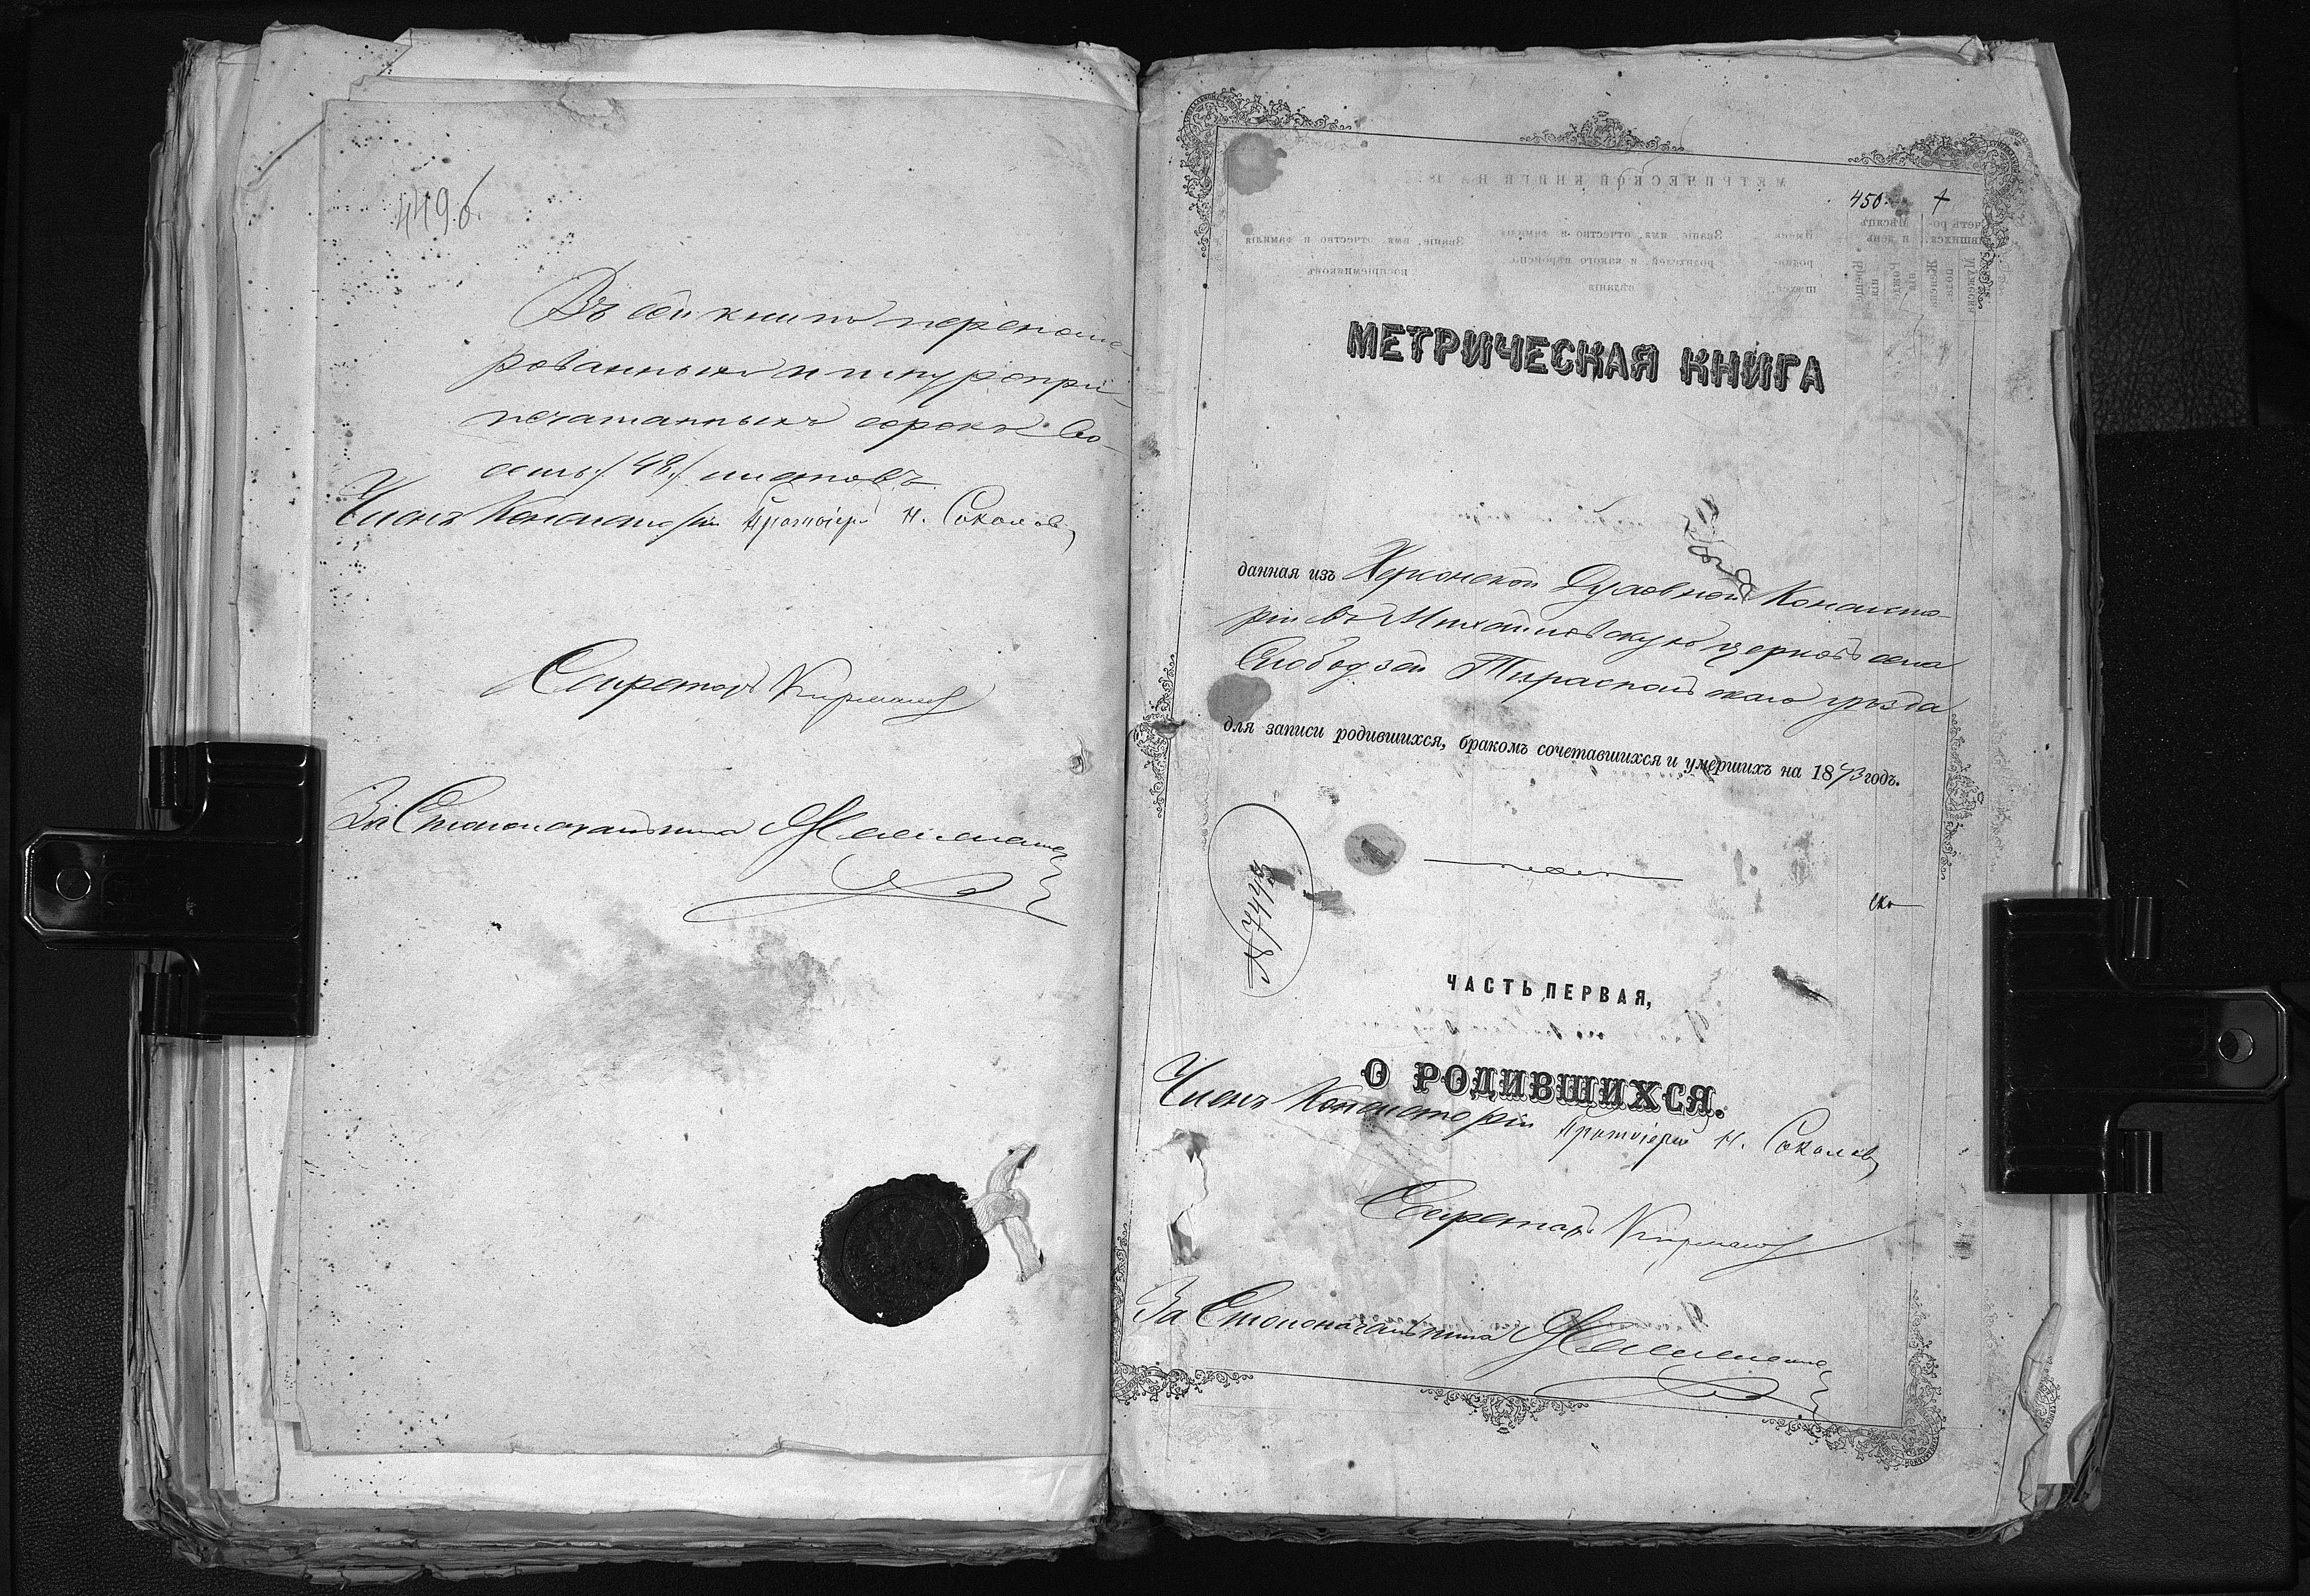 449б
Въ сей книгѣ перенуме-
рованныхъ и шнуропри-
печатанныхъ сорокъ во-
семь /48/ листовъ
Членъ Консисторіи Протоіерей Н. Соколовъ
Секретарь
За Столоначальника
450
МЕТРИЧЕСКАЯ КНИГА
данная изъ Херсонской Духовной Консисто-
ріи въ Михайловскую церковь села
Слободзеи Тираспольскаго уѣзда
для записи родившихся, бракомъ сочетавшихся и умершихъ на 1873 годъ.
№ 7443
ЧАСТЬ ПЕРВАЯ,
О РОДИВШИХСЯ.
Членъ Консисторіи Протоіерей Н. Соколовъ
Секретарь
За Столоначальника